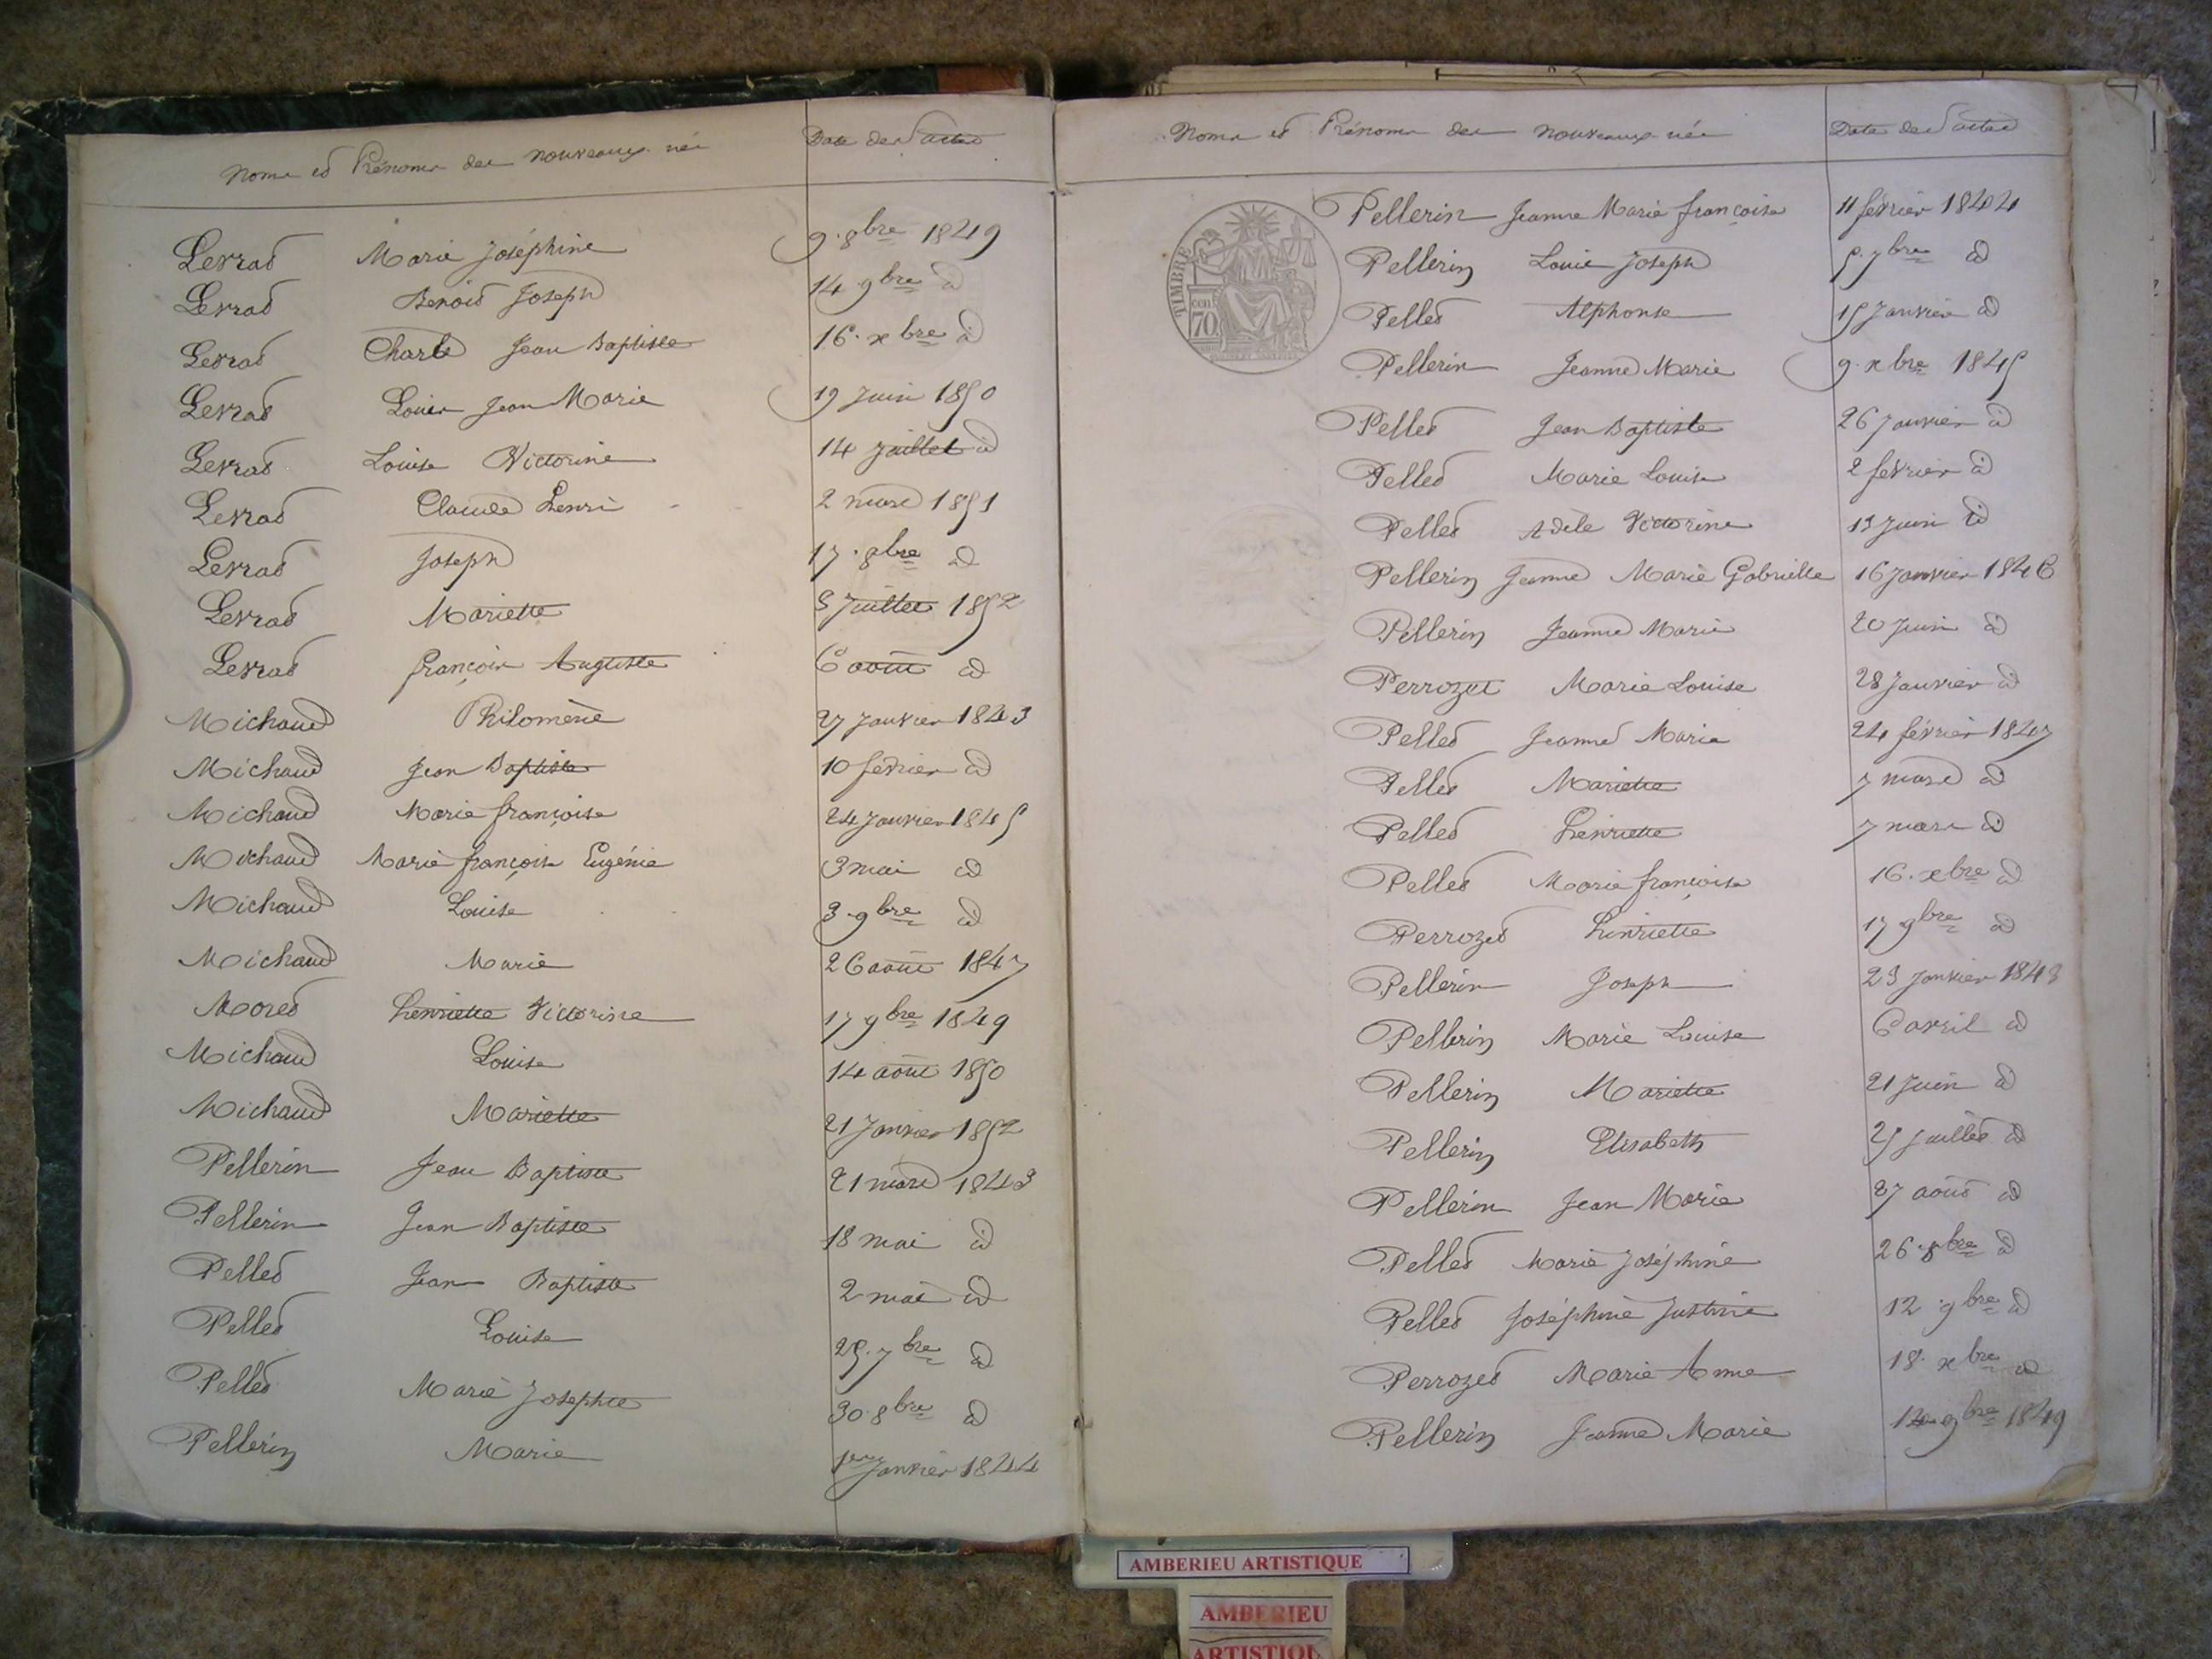 Noms et Prénoms des nouveaux nés Date des actes
Levrat Marie Joséphine 9. 8bre 1849
Levrat Benoit Joseph 14. 9bre id
Levrat Charle Jean Baptiste 16. xbre id
Levrat Louis Jean Marie 19 Juin 1850
Levrat Louise Victorine 14 Juillet id
Levrat Claude henri 2 mars 1851
Levrat Joseph 17. 8bre id
Levrat Mariette 3 Juillet 1852
Levrat françois Auguste 6 aout id
Michaud Philomène 27 Janvier 1843
Michaud Jean Baptiste 10 février id
Michaud Marie françoise 24 Janvier 1845
Michaud Marie françoise Eugénie 3 mai id
Michaud Louise 3. 9bre id
Michaud Marie 26 aout 1847
Moret henriette Victorine 17 9bre 1849
Michaud Louise 14 aout 1850
Michaud Mariette 21 Janvier 1852
Pellerin Jean Baptiste 21 mars 1843
Pellerin Jean Baptiste 18 mai id
Pellet Jean Baptiste 2 mai id
Pellet Louise 25. 7bre id
Pellet Marie Josephte 30. 8bre id
Pellerin Marie 1er Janvier 1844
Noms et Prénoms des nouveaux nés Date des actes
TIMBRE
cent
70
Pellerin Jeanne Marie françoise 11 février 1844
Pellerin Louis Joseph 5. 7bre id
Pellet Alphonse 15 Janvier id
Pellerin Jeanne Marie 9. xbre 1845
Pellet Jean Baptiste 26 Janvier id
Pellet Marie Louise 2 février id
Pellet Adèle Victorine 13 Juin id
Pellerin Jeanne Marie Gabrielle 16 Janvier 1846
Pellerin Jeanne Marie 20 Juin id
Perrozet Marie Louise 28 Janvier id
Pellet Jeanne Marie 24 février 1847
Pellet Mariette 7 mars id
Pellet henriette 7 mars id
Pellet Marie françoise 16. xbre id
Perrozet henriette 17 9bre id
Pellerin Joseph 23 Janvier
Pellerin Marie Louise 6 avril id
Pellerin Mariette 21 Juin id
Pellerin Elisabeth 25 Juillet id
Pellerin Jean Marie 27 aout id
Pellet Marie Joséphine 26. 8bre id
Pellet Joséphine Justine 12. 9bre id
Perrozet Marie Anne 18. xbre id
Pellerin Jeanne Marie 9bre 1849
AMBERIEU ARTISTIQUE
AMBERIEU
ARTISTIQU